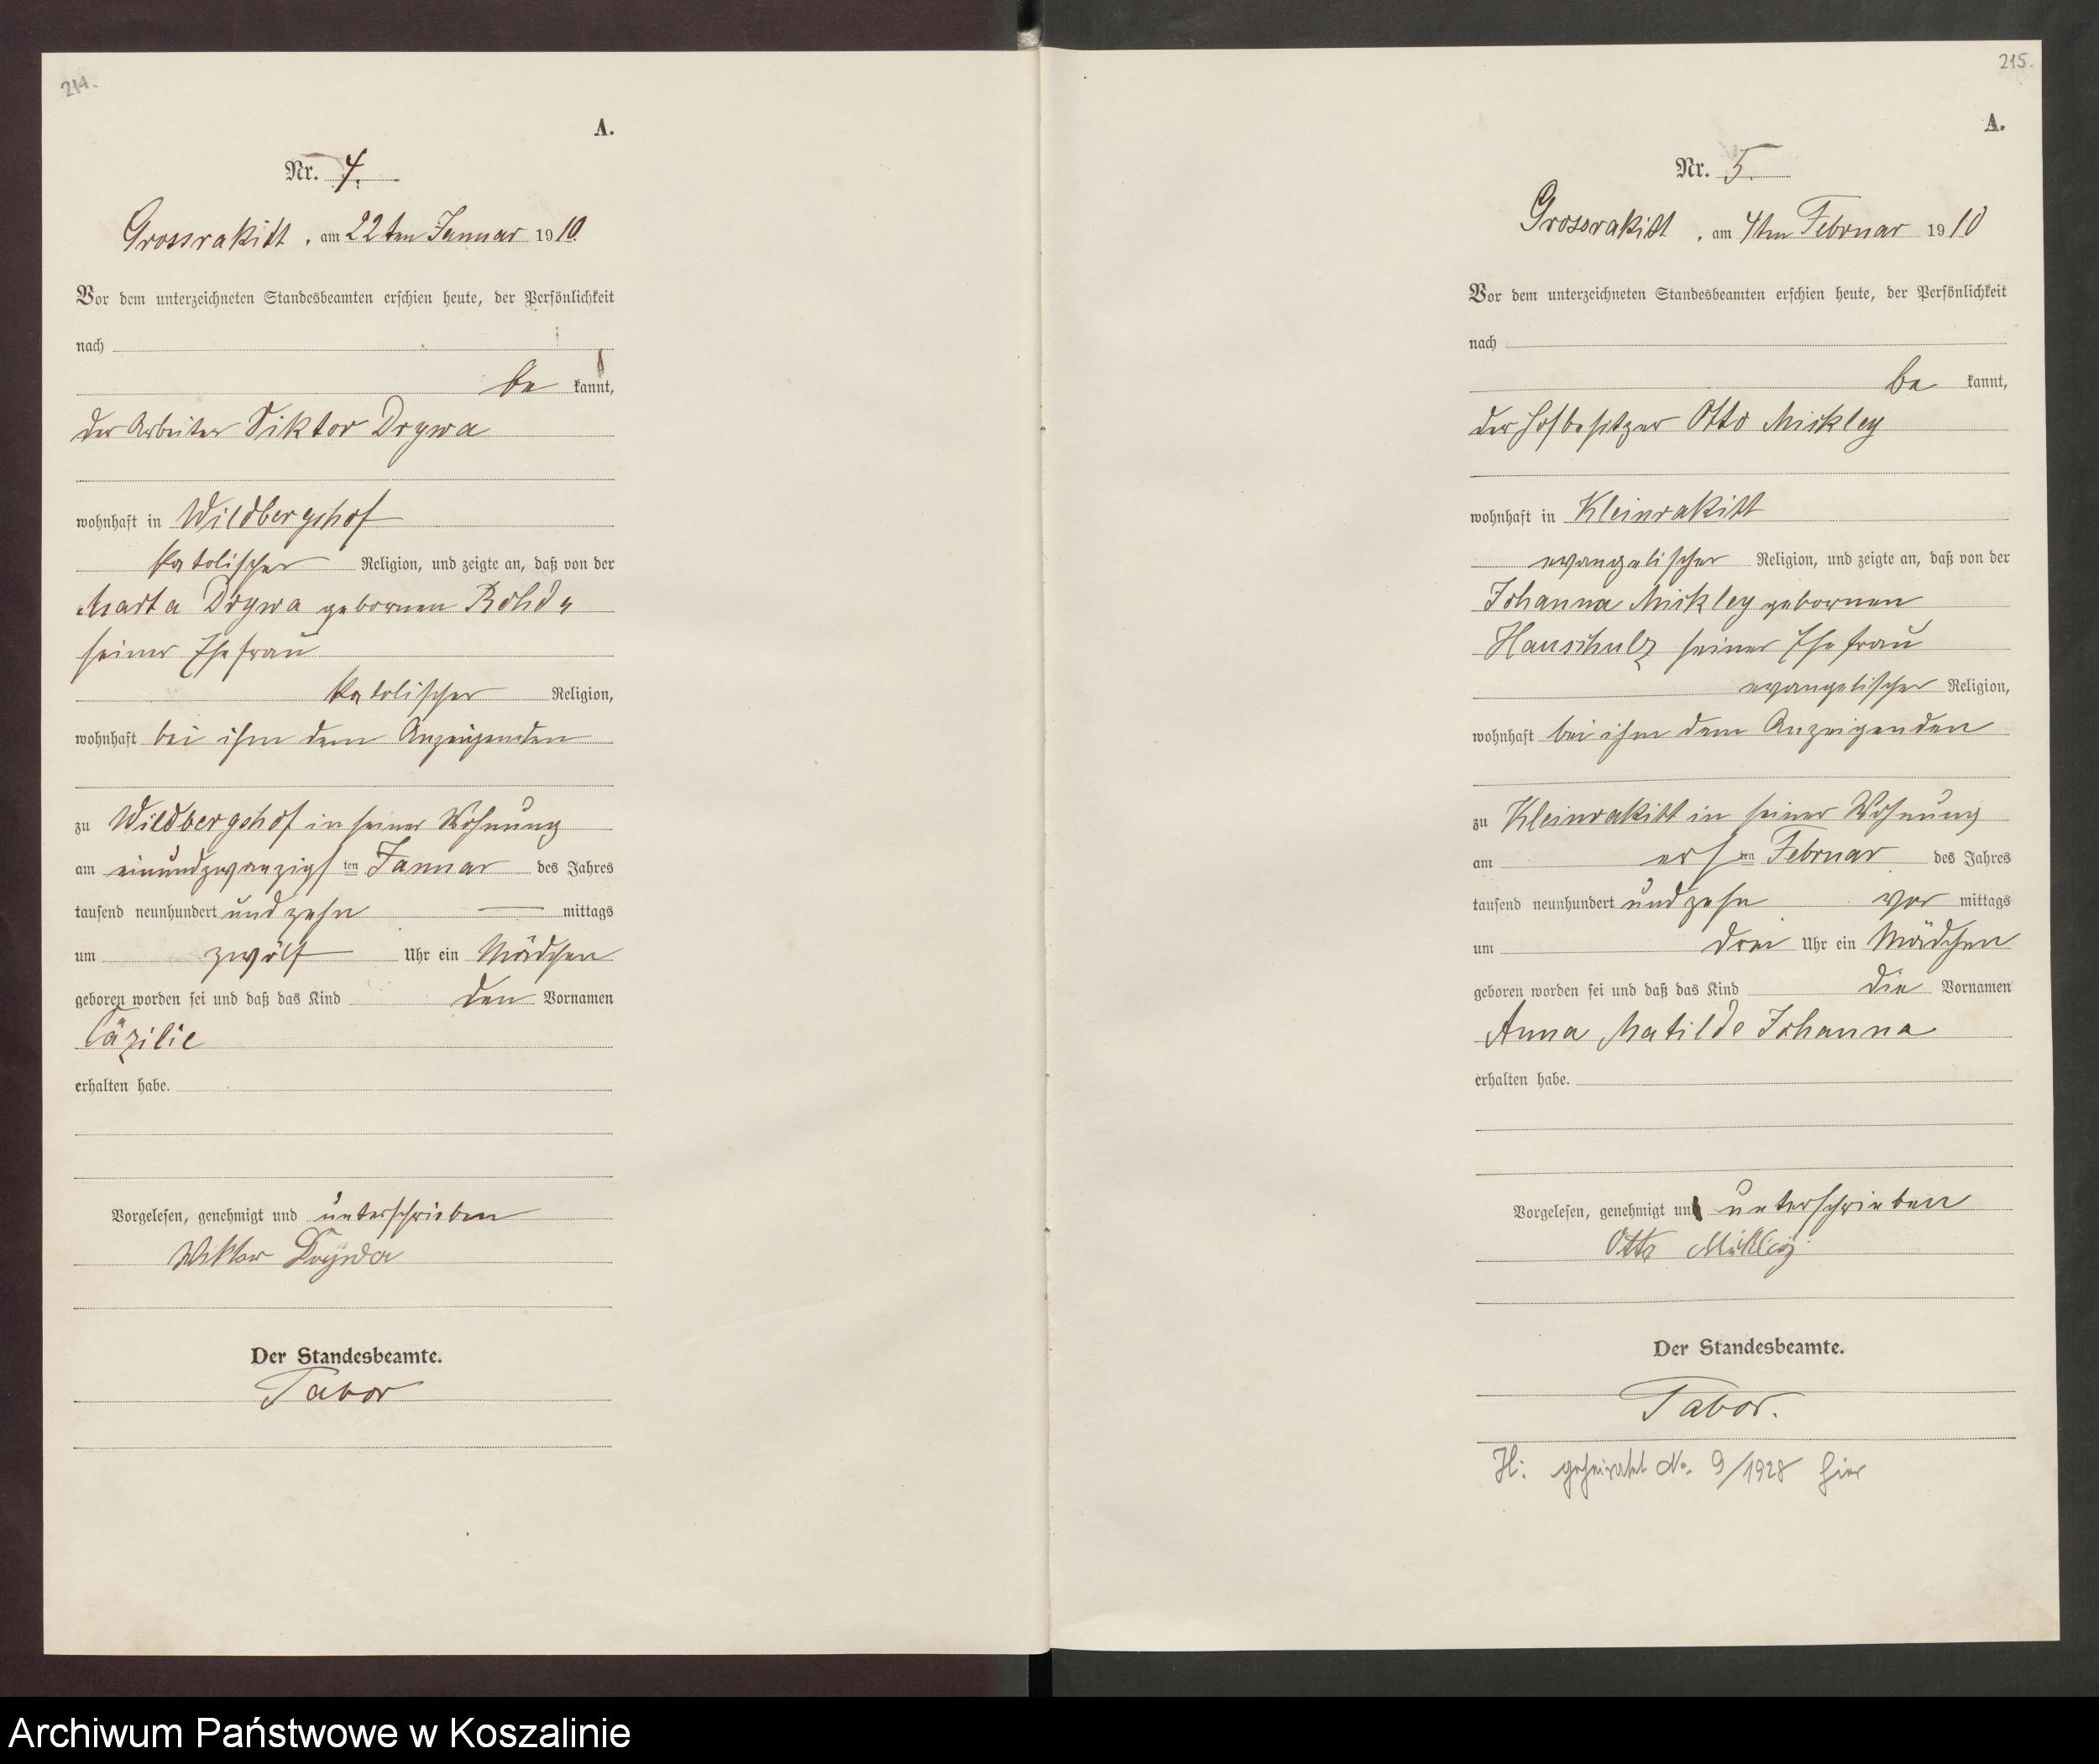 214.
A.
Nr. 4.
Grossrakitt, am 22ten Januar 1910.
Vor dem unterzeichneten Standesbeamten erschien heute, der Persönlichkeit
nach
be kannt,
der Arbeiter Viktor Drywa
wohnhaft in Wildbergshof
katolischer Religion, und zeigte an, daß von der
Marta Drywa gebornen Rohde
seiner Ehefrau
katolischer Religion,
wohnhaft bei ihm dem Anzeigenden
zu Wildbergshof in seiner Wohnung
am einundzwanzigsten Januar des Jahres
tausend neunhundert und zehn — mittags
um zwölf Uhr ein Mädchen
geboren worden sei und daß das Kind den Vornamen
Cäzilie
erhalten habe.
Vorgelesen, genehmigt und unterschrieben
Wiktor Drywa
Der Standesbeamte.
Tabor
215.
A.
Nr. 5.
Grossrakitt, am 4ten Februar 1910
Vor dem unterzeichneten Standesbeamten erschien heute, der Persönlichkeit
nach
be kannt,
der Hofbesitzer Otto Mickley
wohnhaft in Kleinrakitt
evangelischer Religion, und zeigte an, daß von der
Johanna Mickley gebornen
Hauschulz seiner Ehefrau
evangelischer Religion,
wohnhaft bei ihm dem Anzeigenden
zu Kleinrakitt in seiner Wohnung
am ersten Februar des Jahres
tausend neunhundert und zehn vor mittags
um drei Uhr ein Mädchen
geboren worden sei und daß das Kind die Vornamen
Anna Matilde Johanna
erhalten habe.
Vorgelesen, genehmigt und unterschrieben
Otto Mickley
Der Standesbeamte.
Tabor.
H: geheiratet No. 9/1928 hier
Archiwum Państwowe w Koszalinie